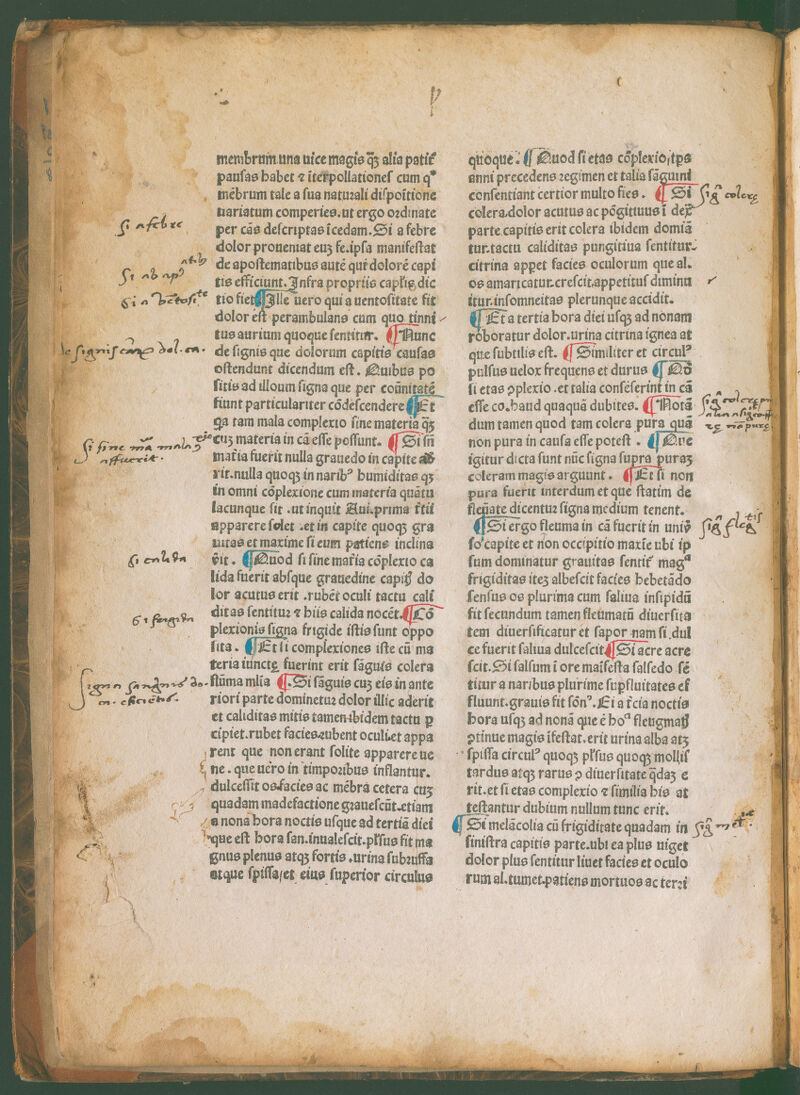 membrum.una uice magis qꝫ alia patit᷑
pausas habet ⁊ īterpollationes cum qͣ
mēbrum tale a sua naturali dispoītione
uariatum comperies.ut ergo ordinate
per cās descriptas īcedam.Si a febre
dolor proueniat euꝫ fe.ipsa manifestat
de apostematibus autē qui dolorē capi
tis efficiunt.Infra propriis caplis dic
tio fiet¶Ille uero qui a uentositate fit
dolor est perambulans cum quo tinni
tus aurium quoque sentitur. ¶Nunc
de signis que dolorum capitis causas
ostendunt dicendum est. Quibus po
sitis ad illoum signa que per coūnitatē
fiunt particulariter cōdescendere¶Et
qa tam mala complexio sine materia qꝫ
cuꝫ materia in cā esse possunt. ¶Si si
mat̄ia fuerit nulla grauedo in capite ab
rit.nulla quoqꝫ in narib᷒ humiditas qꝫ
in omni cōplexione cum materia quātu
lacunque sit .ut inquit Aui.prima t̄tii
apparere solet .et in capite quoqꝫ gra
uitas et maxime si eum patiens inclina
v̄it. ¶Quod si sine mat̄ia cōplexio ca
lida fuerit absque grauedine capitꝭ do
lor acutus erit .rubēt oculi tactu cali
ditas sentitur ⁊ hiis calida nocēt.¶Cō
plexionis signa frigide istis sunt oppo
sita. ¶Et si complexiones iste cū ma
teria iuncte fuerint erit sāguis colera
flūma mlīa ¶.Si sāguis cuꝫ eis in ante
riori parte dominetur dolor illic aderit
et caliditas mitis tamen.ibidem tactu ꝑ
cipiet.rubet facies.rubent oculi.et appa
rent que non erant solite apparere ue
ne . que uero in timporibus inflantur.
dulcessit os.facies ac mēbra cetera cuꝫ
quadam madefactione grauescūt.etiam
a nona hora noctis usque ad tertiā diei
que est hora san.inualescit.pl̄sus fit ma
gnus plenus atqꝫ fortis .urina subruffa
atque spissa/et eius superior circulus
quoque. ¶Quod si etas cōplexio/tps
anni precedens regimen et talia sāguini
consentiant certior multo fies. ¶Si
colera.dolor acutus ac pōgitiuus ī dex̄
parte capitis erit colera ibidem domiā
tur.tactu caliditas pungitiua sentitur.
citrina appet facies oculorum que al.
os amaricatur.crescit.appetitus diminu
itur.insomneitas plerunque accidit.
¶Et a tertia hora diei usqꝫ ad nonam
roboratur dolor.urina citrina ignea at
que subtilis est. ¶Similiter et circul᷒
pulsus uelox frequens et durus ¶Qō
si etas ꝓplexio .et talia consēserint in cā
esse co.haud quaquā dubites. ¶Notā
dum tamen quod tam colera pura quā
non pura in causa esse potest . ¶Que
igitur dicta sunt nūc signa supra puraꝫ
coleram magis arguunt . ¶Et si non
pura fuerit interdum et que statim de
flegmate dicentur signa medium tenent.
¶Si ergo fleuma in cā fuerit in uniṽ
so capite et non occipitio maxīe ubi ip
sum dominatur grauitas sentit᷑ magͣ
frigiditas iteꝫ albescit facies hebetādo
sensus os plurima cum saliua insipidū
fit secundum tamen fleumatū diuersita
tem diuersificatur et sapor nam si .dul
ce fuerit saliua dulcescit¶Si acre acre
scit.Si salsum ī ore maīfesta salsedo sē
titur a naribus plurime supfluitates ef
fluunt.grauis fit sōn᷒.Ei a t̄cia noctis
hora usqꝫ ad nonā que ē hoͣ fleugmatꝭ
ꝓtinue magis īfestat.erit urina alba atꝫ
spissa circul᷒ quoqꝫ pl̄sus quoqꝫ mollis
tardus atqꝫ rarus ꝓ diuersitate qdaꝫ e
rit.et si etas complexio ⁊ similia his at
testantur dubium nullum tunc erit.
¶Si melācolia cū frigiditate quadam in
sinistra capitis parte.ubi ea plus uiget
dolor plus sentitur liuet facies et oculo
rum al.tumet.patiens mortuos ac terri
si a febre
si ab apͦ
si a vētosite
de signis
si sine mā mala
affuerit.
si calida
si frigida
signa sanguis do-
sigͣ colerę
sigͣ fleg
sigͣ